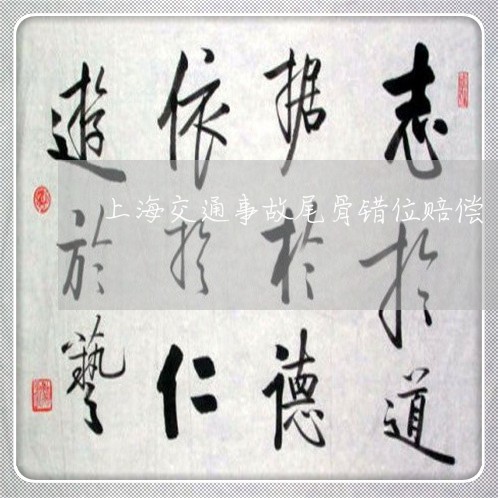 志於道
据於德
依於仁
遊於藝
上海交通事故尾骨错位赔偿